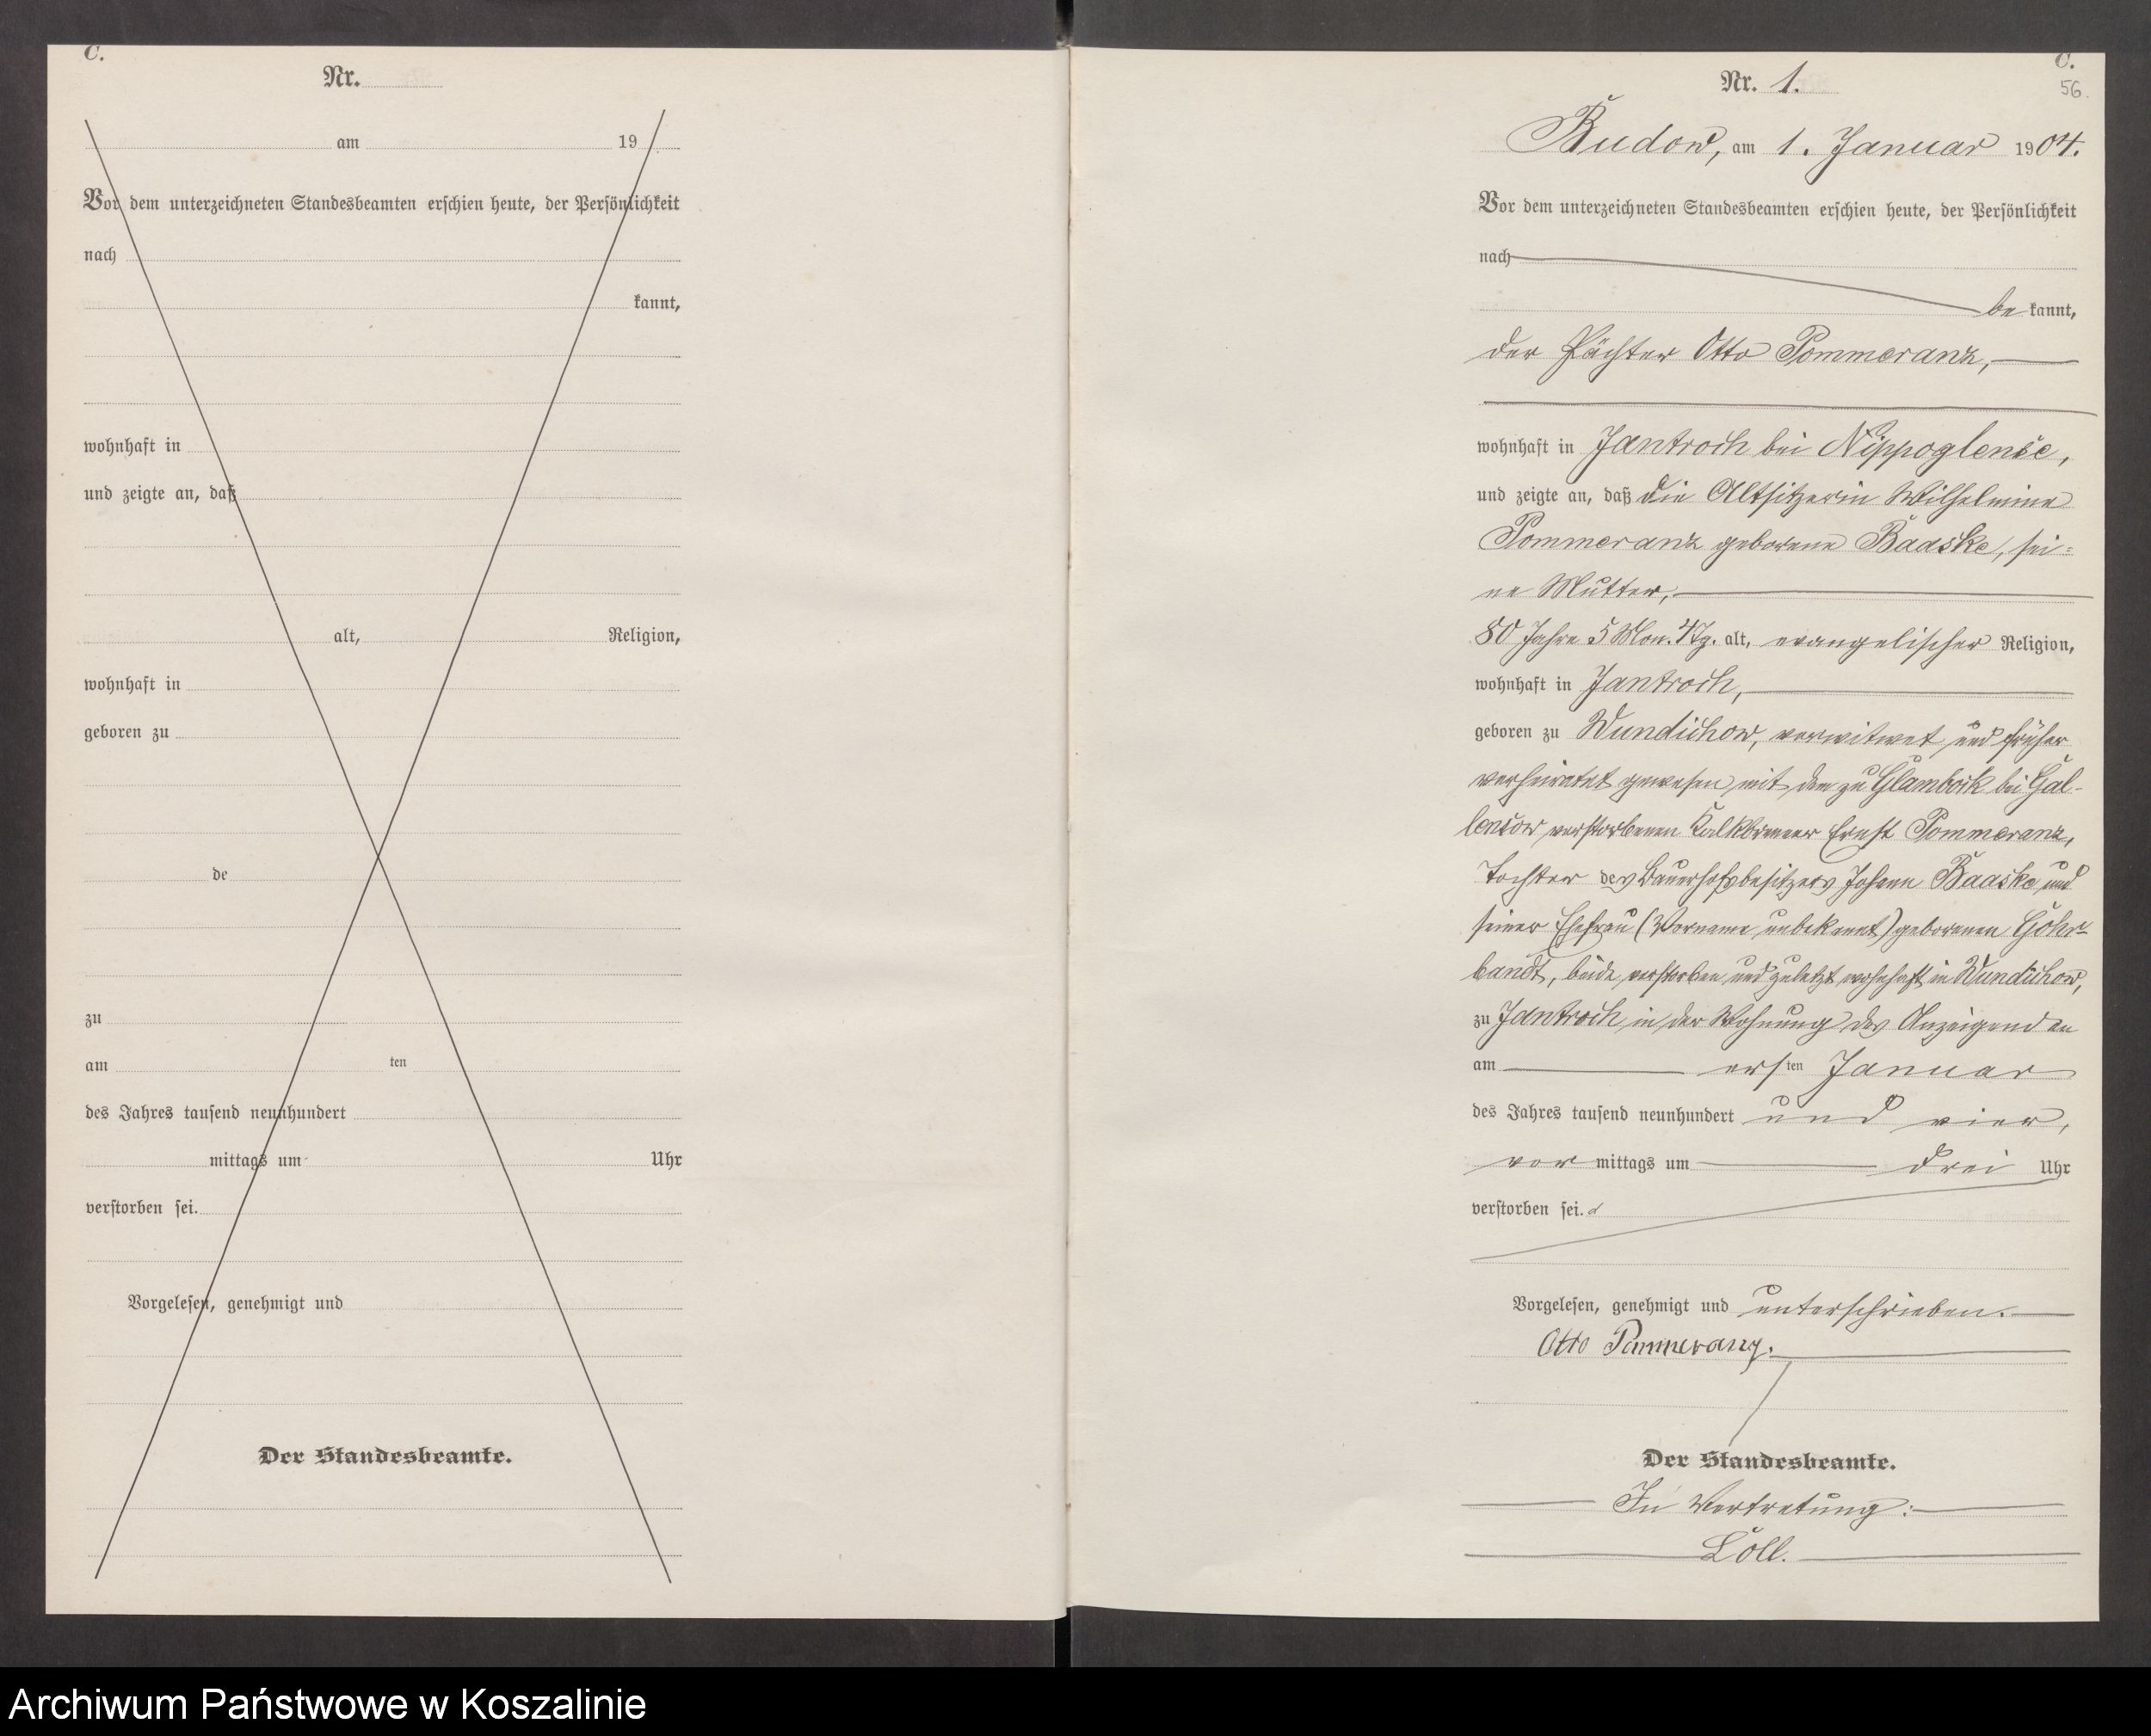 C.
Nr.
am 19
Vor dem unterzeichneten Standesbeamten erschien heute, der Persönlichkeit
nach
kannt,
wohnhaft in
und zeigte an, daß
alt, Religion,
wohnhaft in
geboren zu
de
zu
am ten
des Jahres tausend neunhundert
mittags um Uhr
verstorben sei.
Vorgelesen, genehmigt und
Der Standesbeamte.
C.
56.
Nr. 1.
Budow, am 1. Januar 1904.
Vor dem unterzeichneten Standesbeamten erschien heute, der Persönlichkeit
nach
be kannt,
der Pächter Otto Pommeranz,
wohnhaft in Jantroch bei Nippoglense,
und zeigte an, daß die Altsitzerin Wilhelmine
Pommeranz geborene Baaske, sei=
ne Mutter,
80 Jahre 5 Mon. 4 Tg. alt, evangelischer Religion,
wohnhaft in Jantroch,
geboren zu Wundichow, verwitwet und früher
verheiratet gewesen mit dem zu Glambock bei Gal-
lensow verstorbenen Kalkbrenner Ernst Pommeranz,
Tochter des Bauerhofsbesitzers Johann Baaske und
seiner Ehefrau (Vorname unbekannt) geborenen Gohr=
bandt, beide verstorben und zuletzt wohnhaft in Wundichow,
zu Jantroch, in der Wohnung des Anzeigenden
am ersten Januar
des Jahres tausend neunhundert und vier,
vor mittags um drei Uhr
verstorben sei.
Vorgelesen, genehmigt und unterschrieben.
Otto Pommeranz.
Der Standesbeamte.
In Vertretung:
Löll.
Archiwum Państwowe w Koszalinie